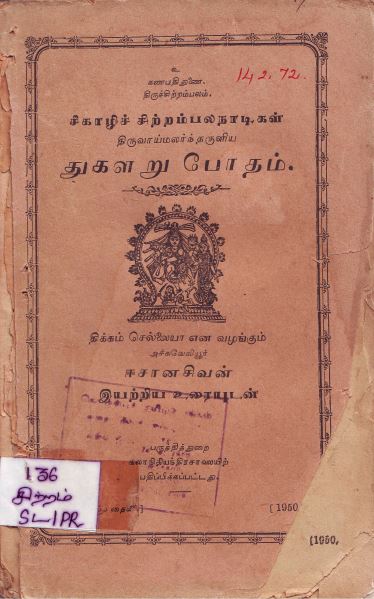 உ
கணபதி துணை.
திருச்சிற்றம்பலம்.
142.72.
சீகாழிச் சிற்றம்பலநாடிகள்
திருவாய்மலர்ந்தருளிய
துகளறு போதம்.
திக்கம் செல்லையா என வழங்கும்
அச்சுவேலியூர்
ஈசானசிவன்
இயற்றிய உரையுடன்
பருத்தித்துறை
கலாநிதியந்திரசாலையிற்
பதிப்பிக்கப்பட்டது.
136
சிற்றம்
SL-1PR
[1950
(1950,